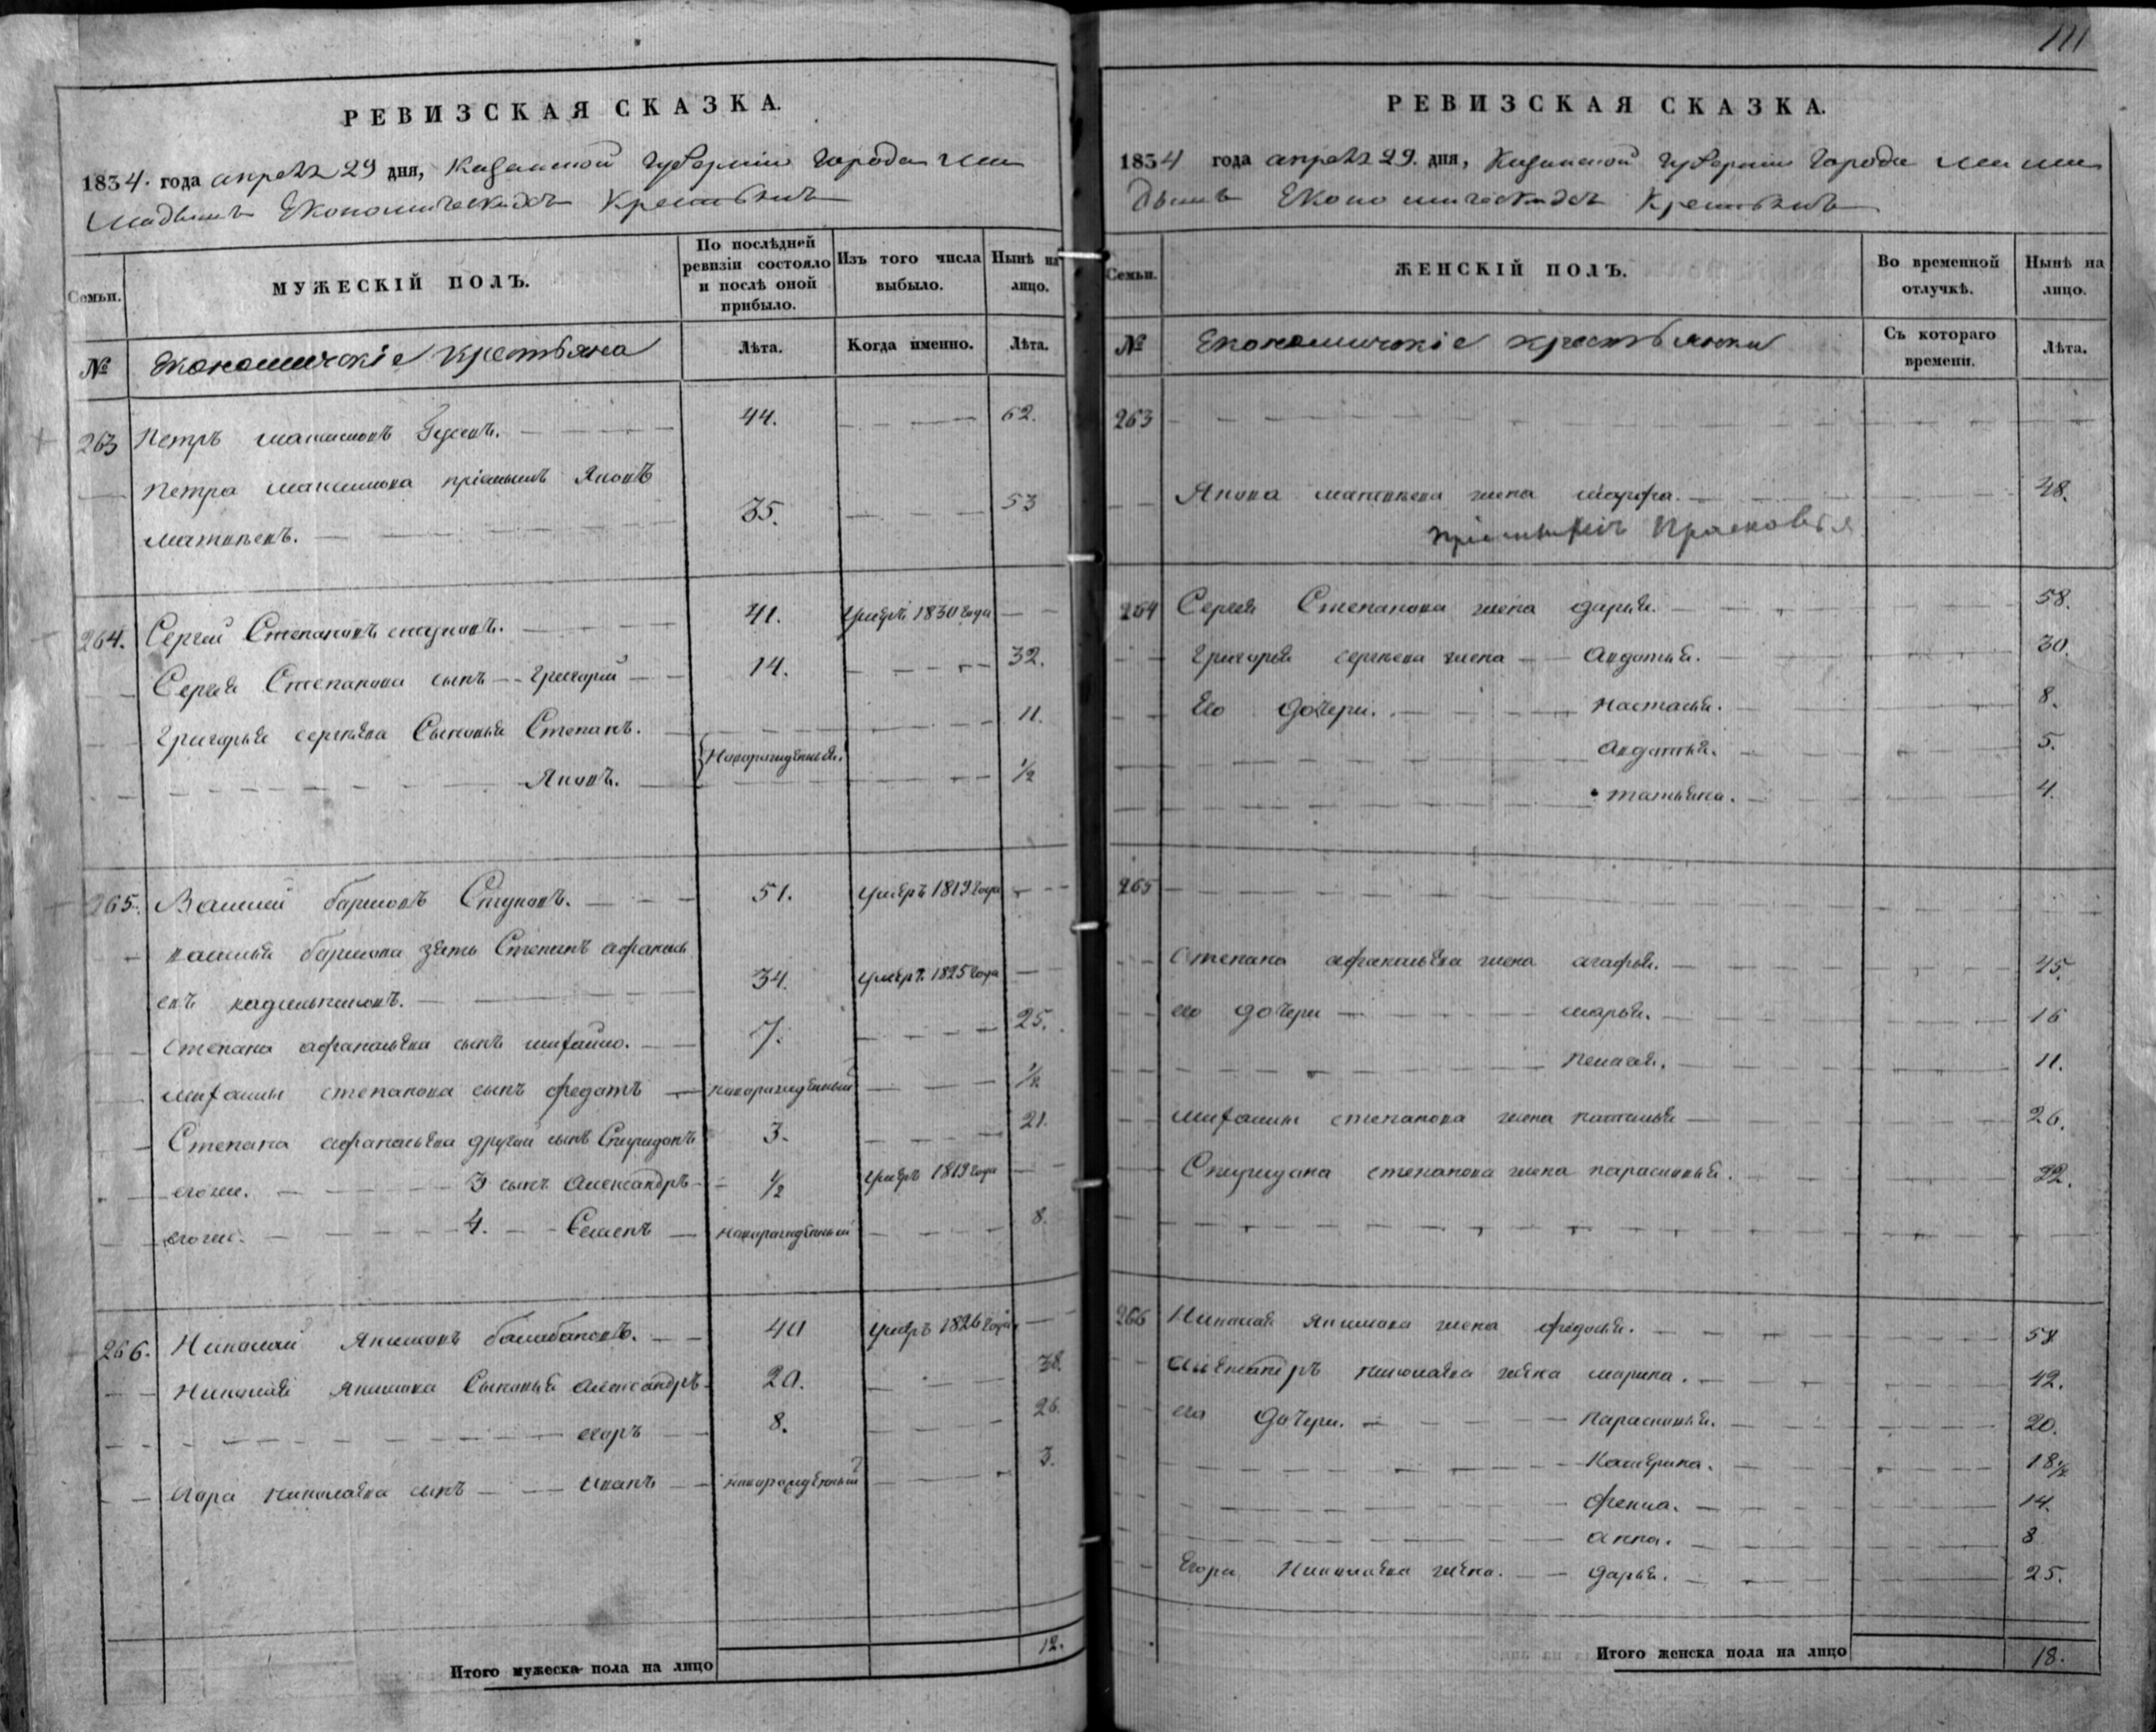 111
РЕВИЗСКАЯ СКАЗКА.
1834. года апреля 29 дня, Казанской губернии города Ма
мадыша Економическихъ Крестьянъ
Семьи.
МУЖЕСКІЙ ПОЛЪ.
По послѣдней ревизіи состояло и послѣ оной прибыло.
Изъ того числа выбыло.
Нынѣ на лицо.
№ Экономическіе крестьяна
Лѣта. Когда именно. Лѣта.
263 Петръ максимовъ 44. 62.
Петра максимова пріемышъ Яковъ
матвеевъ. 35. 53
264. Сергей Степановъ 41. умеръ 1830 года
Сергея Степанова сынъ Григорий 14. 32.
Григорья сергеева Сыновья Степанъ. 11.
Новорожденныя.
Яковъ. 1/2
265. Василей Ступовъ. 51. умеръ 1819 года
василья зять Степанъ афанась
евъ 34. умеръ 1825 года
степана афанасьева сынъ митрайло. 7. 25.
степанова сынъ федотъ новорожденный 1/2
Степана афанасьева другой сынъ Спиридонъ 3. 21.
егоже. 3 сынъ Александръ 1/2 умеръ 1819 года
егоже. 4. Семенъ новорожденный 8.
266. Николай Якимовъ балабановъ. 40 умеръ 1826 года
Николая Якимова Сыновья Александръ 20. 38.
егоръ 8. 26.
егора николаева сынъ иванъ новорожденный 3.
Итого мужеска пола на лицо 12.
РЕВИЗСКАЯ СКАЗКА.
1834 года апреля 29. дня, Казанской губернии города мама
дыша Економическихъ Крестьянъ
Семьи.
ЖЕНСКІЙ ПОЛЪ.
Во временной отлучкѣ.
Нынѣ на лицо.
№ Економическіе крестьянки
Съ котораго времени. Лѣта.
263
Якова матвеева жена марфа. 48.
Прасковья
264 Сергея Степанова жена дарья. 58.
григорья сергеева жена авдотья. 30.
его дочери. настасья. 8.
авдотья. 5.
татьяна. 4.
265
степана афанасьева жена агафья. 45.
его дочери марья. 16
пелагея. 11.
степанова жена наталья 26.
Спиридона степанова жена парасковья. 22.
266 Николая Якимова жена федосья. 58
николаева жена марина. 42.
его дочери. парасковья. 20.
Катерина. 18 1/2
фекла. 14.
анна. 8
Егора Николаева жена. дарья. 25.
Итого женска пола на лицо 18.